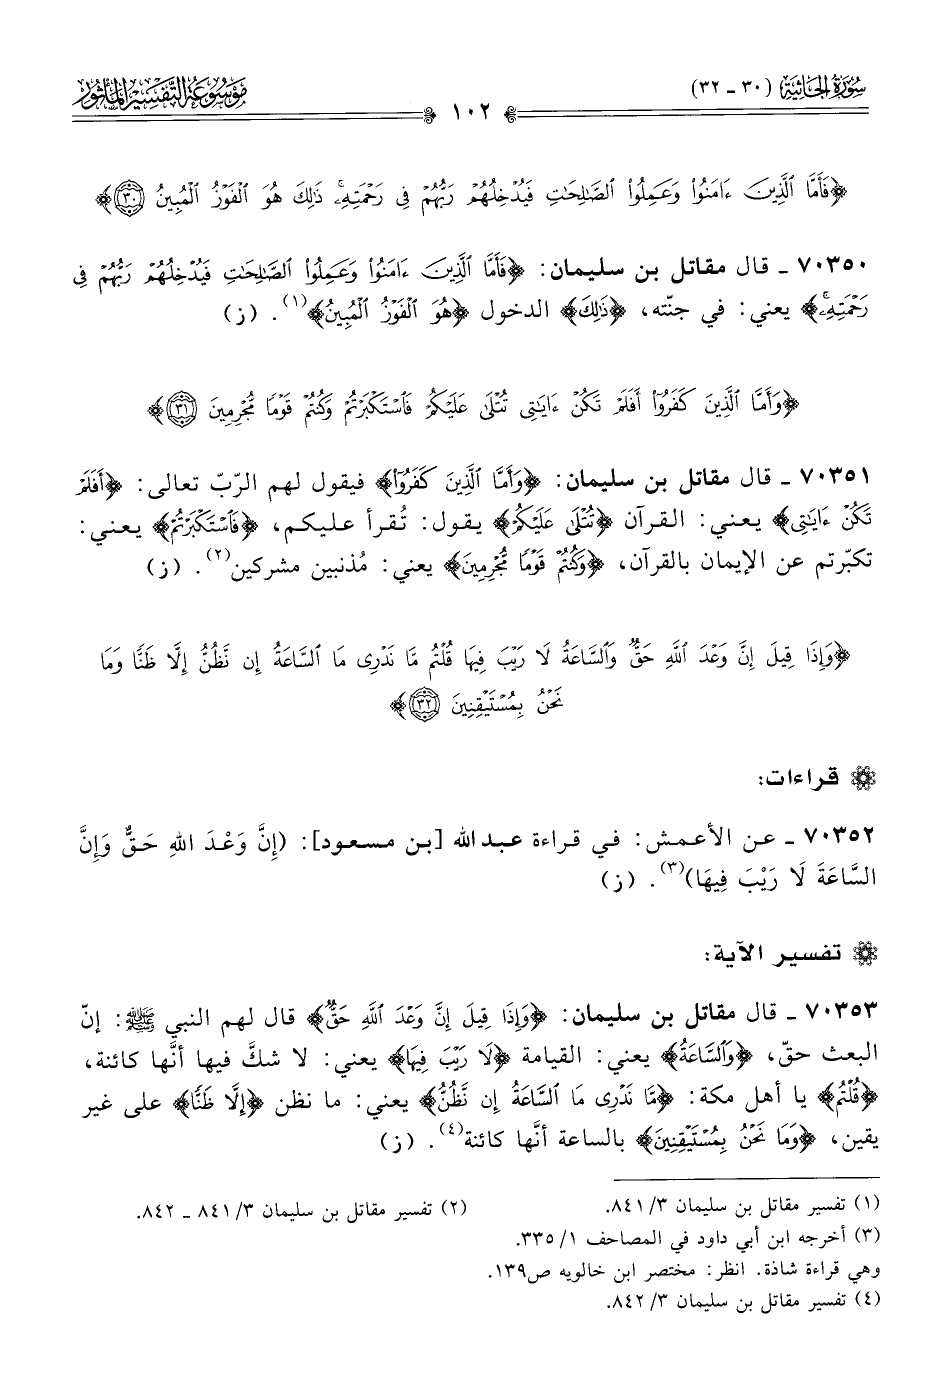 سُورَةُ الجَاثِيَةِ (٣٠ - ٣٢)
١٠٢
مَوْسُوعَة التَّفْسِيرِ المَأْثُور
﴿فَأَمَّا ٱلَّذِينَ ءَامَنُوا۟ وَعَمِلُوا۟ ٱلصَّٰلِحَٰتِ فَيُدْخِلُهُمْ رَبُّهُمْ فِى رَحْمَتِهِۦ ذَٰلِكَ هُوَ ٱلْفَوْزُ ٱلْمُبِينُ ٣٠﴾
٧٠٣٥٠ - قال مقاتل بن سليمان: ﴿فَأَمَّا ٱلَّذِينَ ءَامَنُوا۟ وَعَمِلُوا۟ ٱلصَّٰلِحَٰتِ فَيُدْخِلُهُمْ رَبُّهُمْ فِى
رَحْمَتِهِۦ﴾ يعني: في جنّته، ﴿ذَٰلِكَ﴾ الدخول ﴿هُوَ ٱلْفَوْزُ ٱلْمُبِينُ﴾(١). (ز)
﴿وَأَمَّا ٱلَّذِينَ كَفَرُوٓا۟ أَفَلَمْ تَكُنْ ءَايَٰتِى تُتْلَىٰ عَلَيْكُمْ فَٱسْتَكْبَرْتُمْ وَكُنتُمْ قَوْمًا مُّجْرِمِينَ ٣١﴾
٧٠٣٥١ - قال مقاتل بن سليمان: ﴿وَأَمَّا ٱلَّذِينَ كَفَرُوٓا۟﴾ فيقول لهم الرّبّ تعالى: ﴿أَفَلَمْ
تَكُنْ ءَايَٰتِى﴾ يعني: القرآن ﴿تُتْلَىٰ عَلَيْكُمْ﴾ يقول: تُقرأ عليكم، ﴿فَٱسْتَكْبَرْتُمْ﴾ يعني:
تكبّرتم عن الإيمان بالقرآن، ﴿وَكُنتُمْ قَوْمًا مُّجْرِمِينَ﴾ يعني: مُذنبين مشركين(٢). (ز)
﴿وَإِذَا قِيلَ إِنَّ وَعْدَ ٱللَّهِ حَقٌّ وَٱلسَّاعَةُ لَا رَيْبَ فِيهَا قُلْتُم مَّا نَدْرِى مَا ٱلسَّاعَةُ إِن نَّظُنُّ إِلَّا ظَنًّا وَمَا
نَحْنُ بِمُسْتَيْقِنِينَ ٣٢﴾
قراءات:
٧٠٣٥٢ - عن الأعمش: في قراءة عبد الله [بن مسعود]: (إِنَّ وَعْدَ اللهِ حَقٌّ وَإِنَّ
السَّاعَةَ لَا رَيْبَ فِيهَا)(٣). (ز)
تفسير الآية:
٧٠٣٥٣ - قال مقاتل بن سليمان: ﴿وَإِذَا قِيلَ إِنَّ وَعْدَ ٱللَّهِ حَقٌّ﴾ قال لهم النبي ﷺ: إنّ
البعث حقّ، ﴿وَٱلسَّاعَةُ﴾ يعني: القيامة ﴿لَا رَيْبَ فِيهَا﴾ يعني: لا شكَّ فيها أنَّها كائنة،
﴿قُلْتُم﴾ يا أهل مكة: ﴿مَّا نَدْرِى مَا ٱلسَّاعَةُ إِن نَّظُنُّ﴾ يعني: ما نظن ﴿إِلَّا ظَنًّا﴾ على غير
يقين، ﴿وَمَا نَحْنُ بِمُسْتَيْقِنِينَ﴾ بالساعة أنَّها كائنة(٤). (ز)
(١) تفسير مقاتل بن سليمان ٣/ ٨٤١.
(٢) تفسير مقاتل بن سليمان ٣/ ٨٤١ - ٨٤٢.
(٣) أخرجه ابن أبي داود في المصاحف ١/ ٣٣٥.
وهي قراءة شاذة. انظر: مختصر ابن خالويه ص١٣٩.
(٤) تفسير مقاتل بن سليمان ٣/ ٨٤٢.